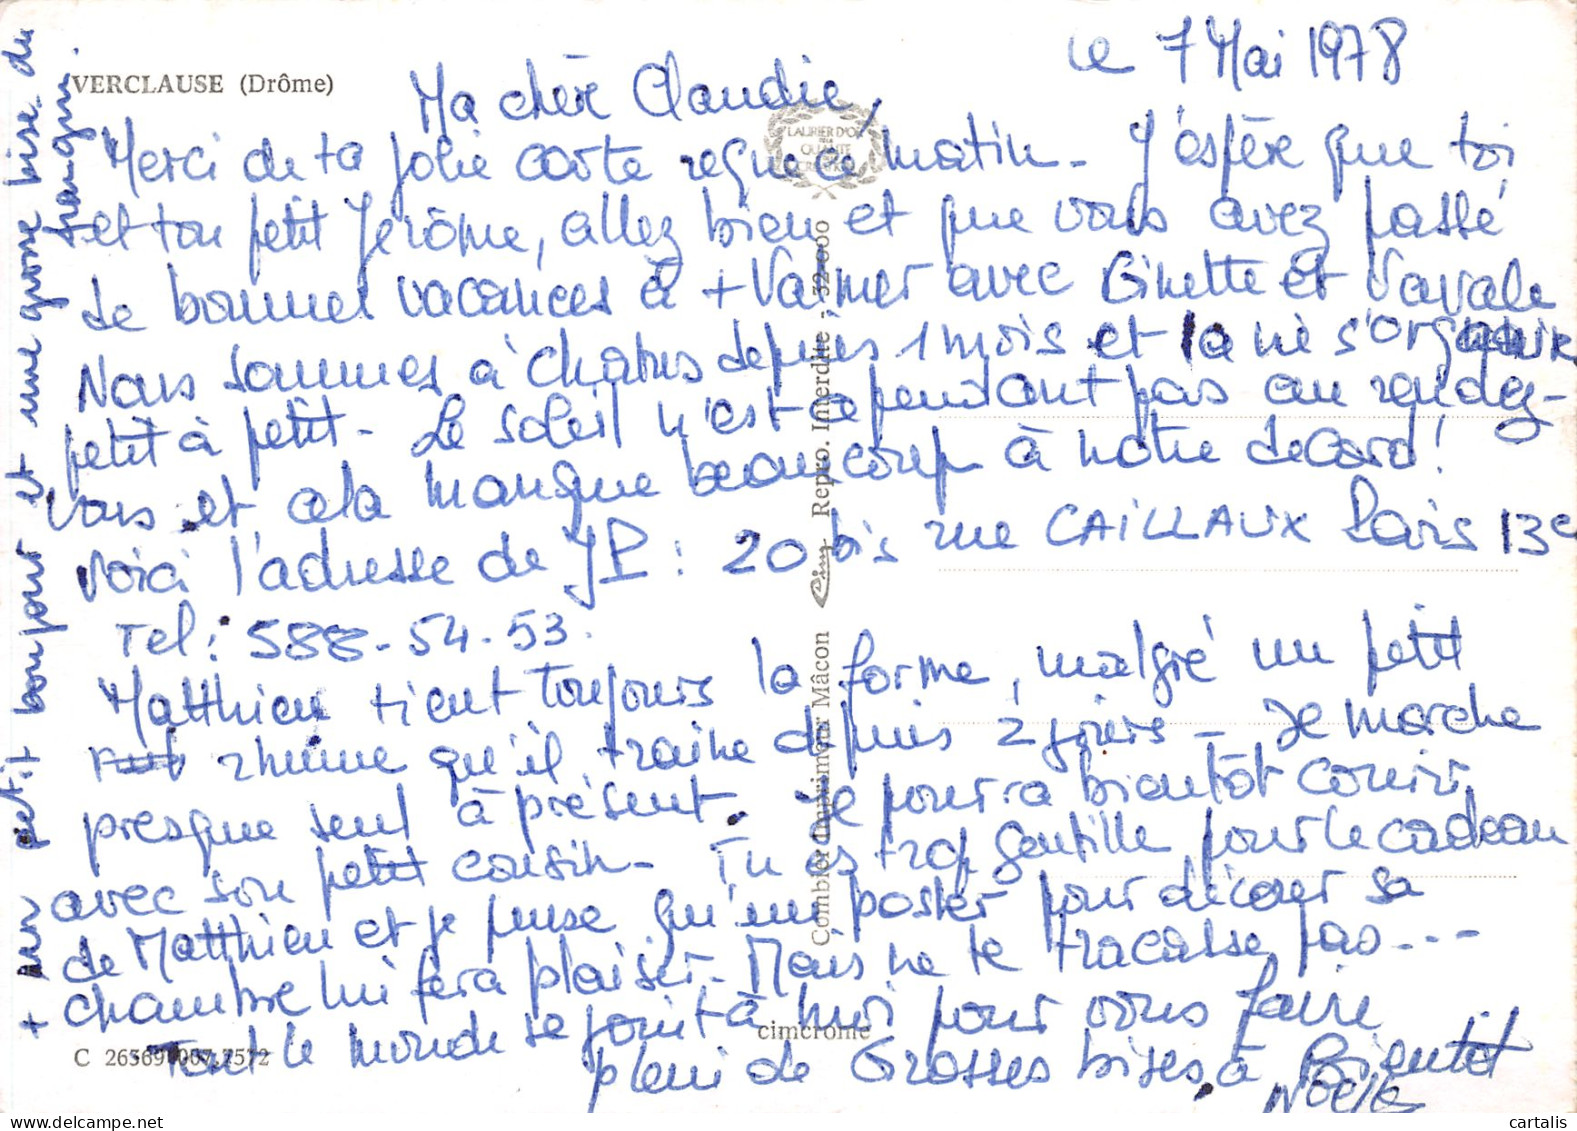 VERCLAUSE (Drôme)
le 7 Mai 1978
Ma chère Claudie,
Merci de ta jolie carte reçue ce matin - J'espère que toi
et ton petit Jérôme, allez bien et que vous avez passé
de bonnes vacances à + Valmer avec Ginette et
Nous sommes à depuis 1 mois et la vie s'organise
petit à petit - Le soleil n'est cependant pas au rendez-
vous et cela manque beaucoup à notre décord !
Voici l'adresse de JP : 20 bis rue CAILLAUX Paris 13e
Tel : 588-54-53.
Matthieu tient toujours la forme, malgré un petit
rhume qu'il traine depuis 2 jours - Je marche
presque seul à présent. Je pourra bientôt courir
avec son petit cousin - Tu es trop gentille pour le cadeau
de Matthieu et je pense qu'un poster pour décorer sa
chambre lui fera plaisir - Mais ne te tracasse pas ---
Tout le monde se joint à moi pour vous faire
plein de Grosses bises, à Bientôt
Noëlle
+ un petit bonjour et une grosse bise du
frangin.
LAURIER D'OR
QUALITE
Cim
Combier Imprimeur Mâcon - Repro. Interdite - 32-000
cimcrome
C 265691007.7572
cartalis.com